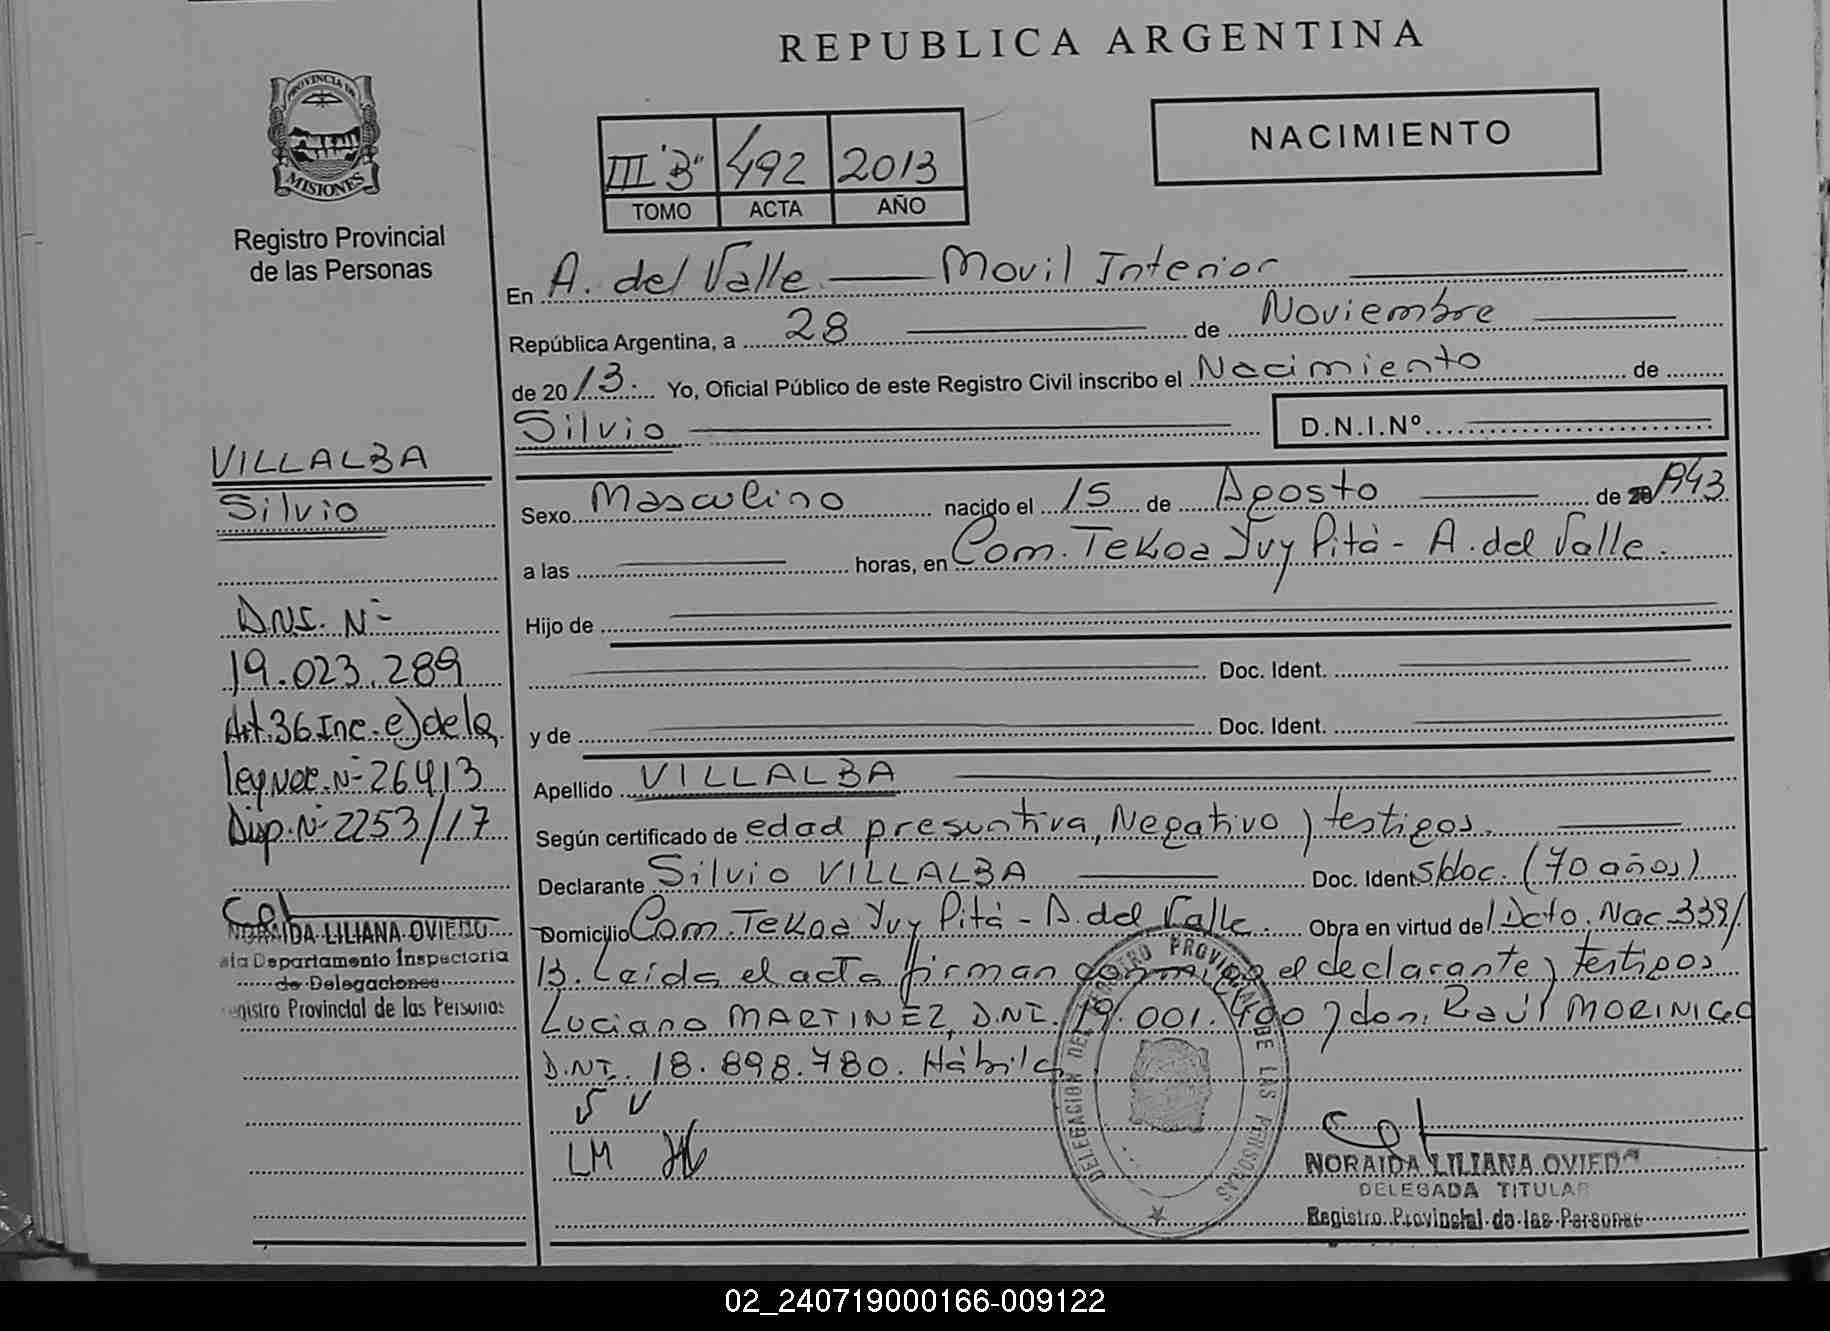 REPUBLICA ARGENTINA
PROVINCIA DE
MISIONES
Registro Provincial
de las Personas
III "B" 492 2013
TOMO ACTA AÑO
NACIMIENTO
En A. del Valle — Movil Interior
República Argentina, a 28 de Noviembre
de 2013. Yo, Oficial Público de este Registro Civil inscribo el Nacimiento de
Silvio D.N.I.Nº
VILLALBA
Silvio
D.N.I. Nº
19.023.289
Art.36 Inc. e) de la
ley Nac. Nº 26413
Disp. Nº 2253/17
NORAIDA LILIANA OVIEDO
Departamento Inspectoria
de Delegaciones
Registro Provincial de las Personas
Sexo Masculino nacido el 15 de Agosto de 1943
a las horas, en Com. Tekoa Yvy Pitá - A. del Valle.
Hijo de
Doc. Ident.
y de Doc. Ident.
Apellido VILLALBA
Según certificado de edad presuntiva, Negativo y testigos.
Declarante Silvio VILLALBA Doc. Ident. s/doc. (70 años)
Domicilio Com. Tekoa Yvy Pitá - A. del Valle. Obra en virtud del Dcto. Nac. 339/
13. Leída el acta firman conmigo el declarante y testigos
Luciano MARTINEZ, D.N.I. 19.001.400 y don Raúl MORINIGO
D.N.I. 18.898.780. Hábiles
S V
LM
DELEGACION DEL REGISTRO PROVINCIAL DE LAS PERSONAS
NORAIDA LILIANA OVIEDO
DELEGADA TITULAR
Registro Provincial de las Personas
02_240719000166-009122